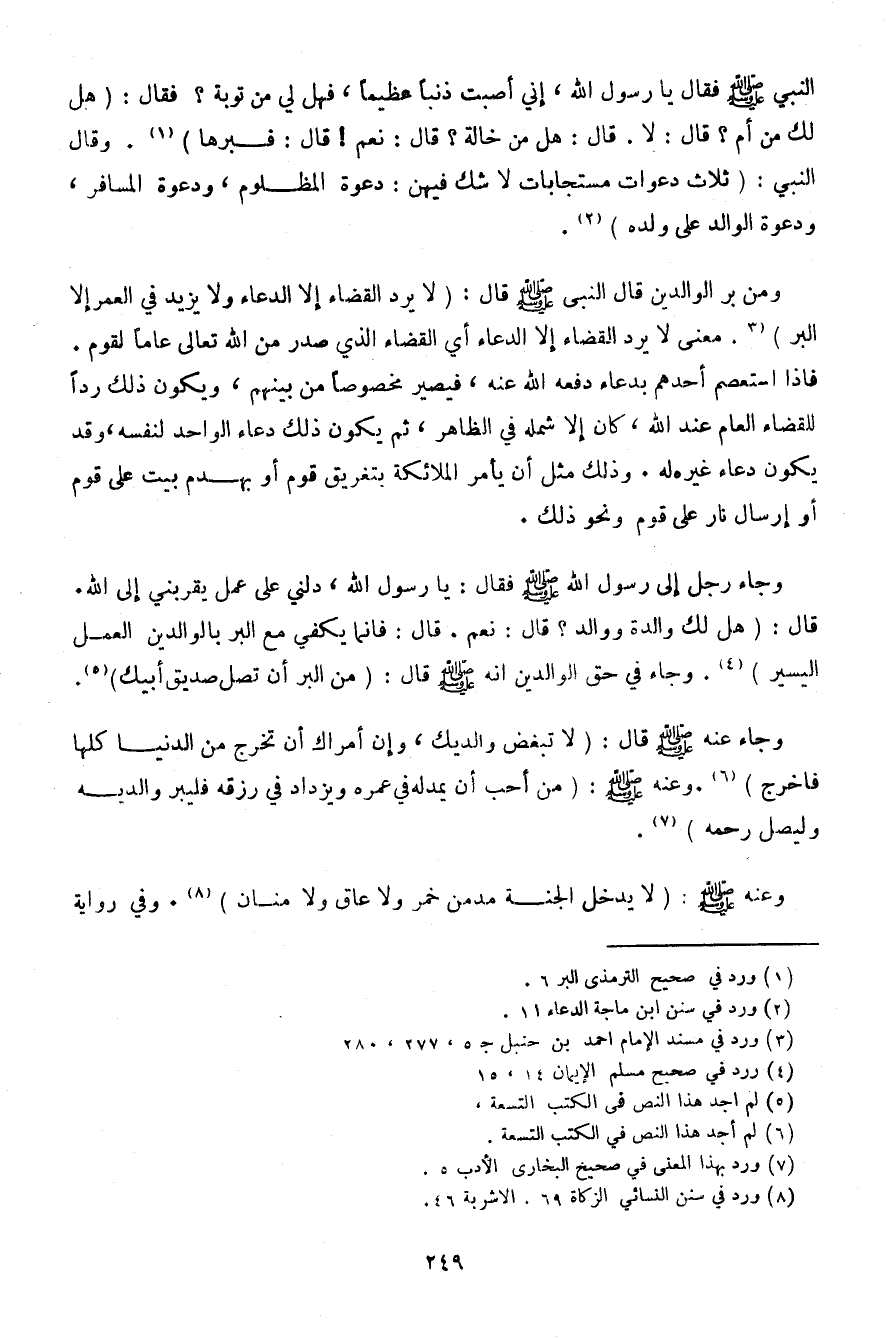 النبي ﷺ فقال يا رسول الله ، إني أصبت ذنباً عظيماً ، فهل لي من توبة ؟ فقال : ( هل
لك من أم ؟ قال : لا . قال : هل من خالة ؟ قال : نعم ! قال : فـــبرها ) (١) . وقال
النبي : ( ثلاث دعوات مستجابات لا شك فيهن : دعوة المظـــلوم ، ودعوة المسافر ،
ودعوة الوالد على ولده ) (٢) .
ومن بر الوالدين قال النبى ﷺ قال : ( لا يرد القضاء إلا الدعاء ولا يزيد في العمر إلا
البر ) (٣ . معنى لا يرد القضاء إلا الدعاء أي القضاء الذي صدر من الله تعالى عاماً لقوم .
فاذا استعصم أحدهم بدعاء دفعه الله عنه ، فيصير مخصوصاً من بينهم ، ويكون ذلك رداً
للقضاء العام عند الله ، كان إلا شمله في الظاهر ، ثم يكون ذلك دعاء الواحد لنفسه ، وقد
يكون دعاء غيره له . وذلك مثل أن يأمر الملائكة بتغريق قوم أو بهـــدم بيت على قوم
أو إرسال نار على قوم ونحو ذلك .
وجاء رجل إلى رسول الله ﷺ فقال : يا رسول الله ، دلني على عمل يقربني إلى الله .
قال : ( هل لك والدة ووالد ؟ قال : نعم . قال : فانما يكفي مع البر بالوالدين العمــل
اليسير ) (٤) . وجاء في حق الوالدين انه ﷺ قال : ( من البر أن تصل صديق أبيك ) (٥) .
وجاء عنه ﷺ قال : ( لا تبغض والديك ، وإن أمراك أن تخرج من الدنيـــا كلها
فاخرج ) (٦) . وعنه ﷺ : ( من أحب أن يمد له في عمره ويزداد في رزقه فليبر والديـــه
وليصل رحمه ) (٧) .
وعنه ﷺ : ( لا يدخل الجنـــة مدمن خمر ولا عاق ولا منــان ) (٨) . وفي رواية
(١) ورد في صحيح الترمذى البر ٦ .
(٢) ورد في سنن ابن ماجة الدعاء ١١ .
(٣) ورد في مسند الإمام احمد بن حنبل جـ ٥ ، ٢٧٧ ، ٢٨٠
(٤) ررد في صحيح مسلم الإيمان ١٤ ، ١٥
(٥) لم اجد هذا النص فى الكتب التسعة ،
(٦) لم أجد هذا النص في الكتب التسعة .
(٧) ورد بهذا المعنى في صحيح البخارى الأدب ٥ .
(٨) ورد في سنن النسائي الزكاة ٦٩ . الاشربة ٤٦ .
٢٤٩